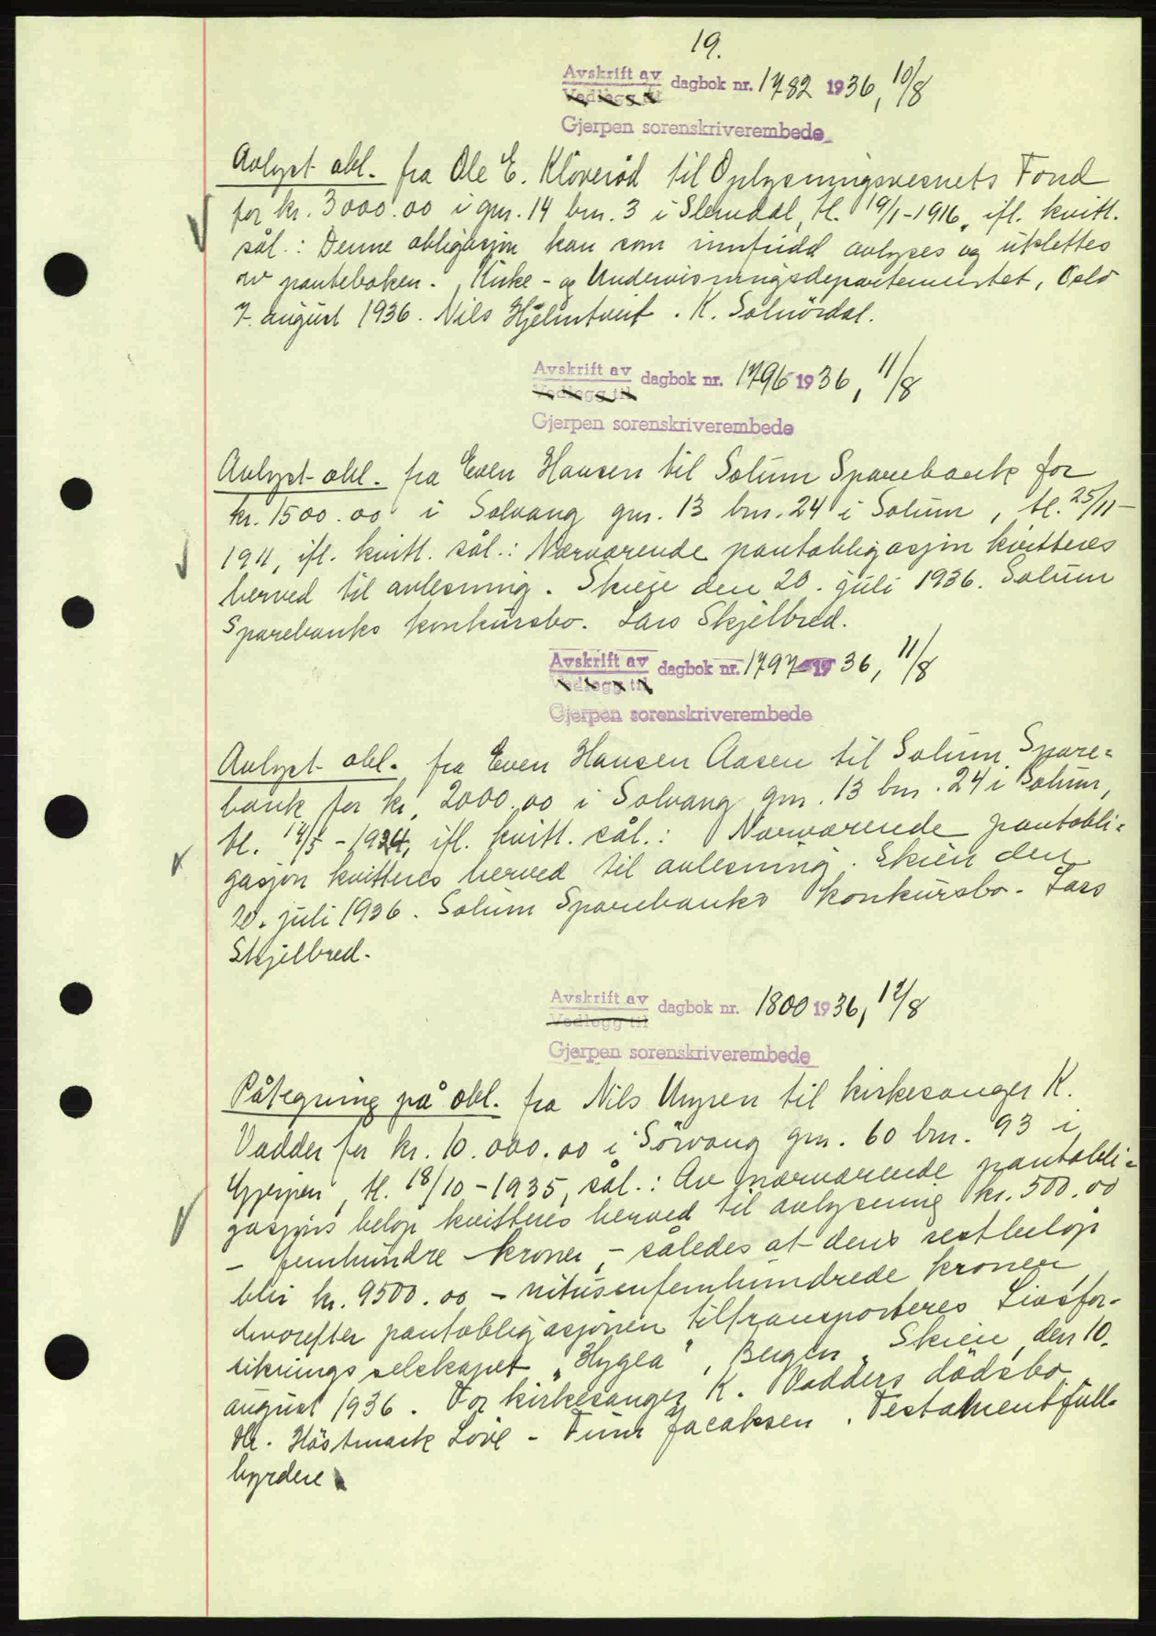 19.
Avskrift av dagbok nr. 1782 1936, 10/8
Vedlegg til
Gjerpen sorenskriverembede
Avlyst obl. fra Ole E. Kløverød til Oplysningsvesnets Fond
for kr. 3000.00 i gnr. 14 bnr. 3 i Slemdal, tl. 19/1-1916, ifl. kvitt.
sål.: Denne obligasjon kan som innfridd avlyses og utslettes
av panteboken. Kirke- og Undervisningsdepartementet, Oslo
7. august 1936. Nils Hjelmtveit. K. Solnördal.
Avskrift av dagbok nr. 1796 1936, 11/8
Vedlegg til
Gjerpen sorenskriverembede
Avlyst obl. fra Even Hansen til Solum Sparebank for
kr. 1500.00 i Solvang gnr. 13 bnr. 24 i Solum, tl. 25/11-
1911, ifl. kvitt. sål.: Nærværende pantobligasjon kvitteres
herved til avlesning. Skien den 20. juli 1936. Solum
Sparebanks konkursbo. Lars Skjelbred.
Avskrift av dagbok nr. 1797 1936, 11/8
Vedlegg til
Gjerpen sorenskriverembede
Avlyst obl. fra Even Hansen Aasen til Solum Spare=
bank for kr. 2000.00 i Solvang gnr. 13 bnr. 24 i Solum,
tl. 14/5-1924, ifl. kvitt. sål.: Nærværende pantobli=
gasjon kvitteres herved til avlesning. Skien den
20. juli 1936. Solum Sparebanks konkursbo. Lars
Skjelbred.
Avskrift av dagbok nr. 1800 1936, 12/8
Vedlegg til
Gjerpen sorenskriverembede
Påtegning på obl. fra Nils Myren til kirkesanger K.
Vadder for kr. 10.000.00 i Sörvang gnr. 60 bnr. 93 i
Gjerpen, tl. 18/10-1935, sål.: Av nærværende pantobli=
gasjons beløp kvitteres herved til avlysning kr. 500.00
- femhundre - kroner, - således at dens restbeløp
blir kr. 9500.00 - nitusenfemhundrede kroner,
hvorefter pantobligasjonen tiltransporteres Livsfor-
sikringsselskapet "Hygea", Bergen. Skien, den 10.
august 1936. For kirkesanger K. Vadders dödsbo.
Hr. Höstmark Löve - Tum Jacobsen. Testamentfull-
byrdere